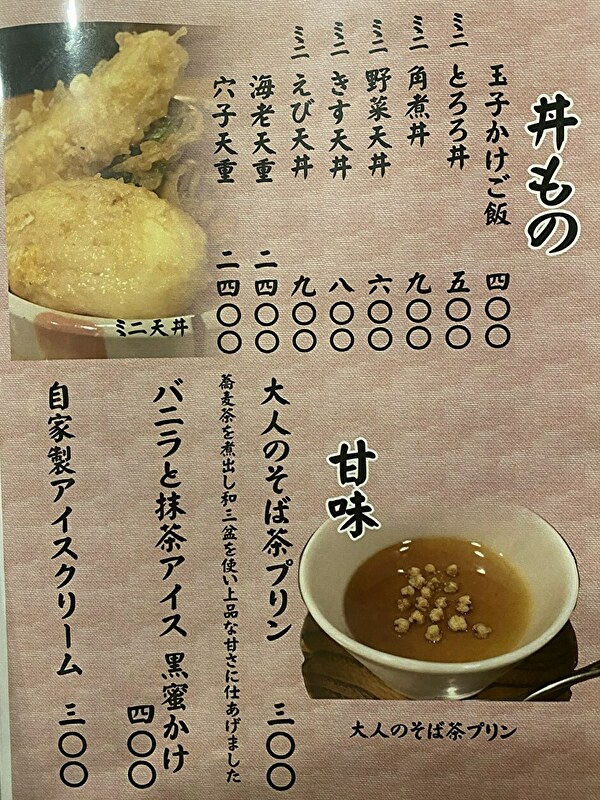 丼もの
玉子かけご飯 四〇〇
ミニ とろろ丼 五〇〇
ミニ 角煮丼 九〇〇
ミニ 野菜天丼 六〇〇
ミニ きす天丼 八〇〇
ミニ えび天丼 九〇〇
海老天重 二四〇〇
穴子天重 二四〇〇
ミニ天丼
甘味
大人のそば茶プリン 三〇〇
蕎麦茶を煮出し和三盆を使い上品な甘さに仕あげました
バニラと抹茶アイス 黒蜜かけ 四〇〇
自家製アイスクリーム 三〇〇
大人のそば茶プリン